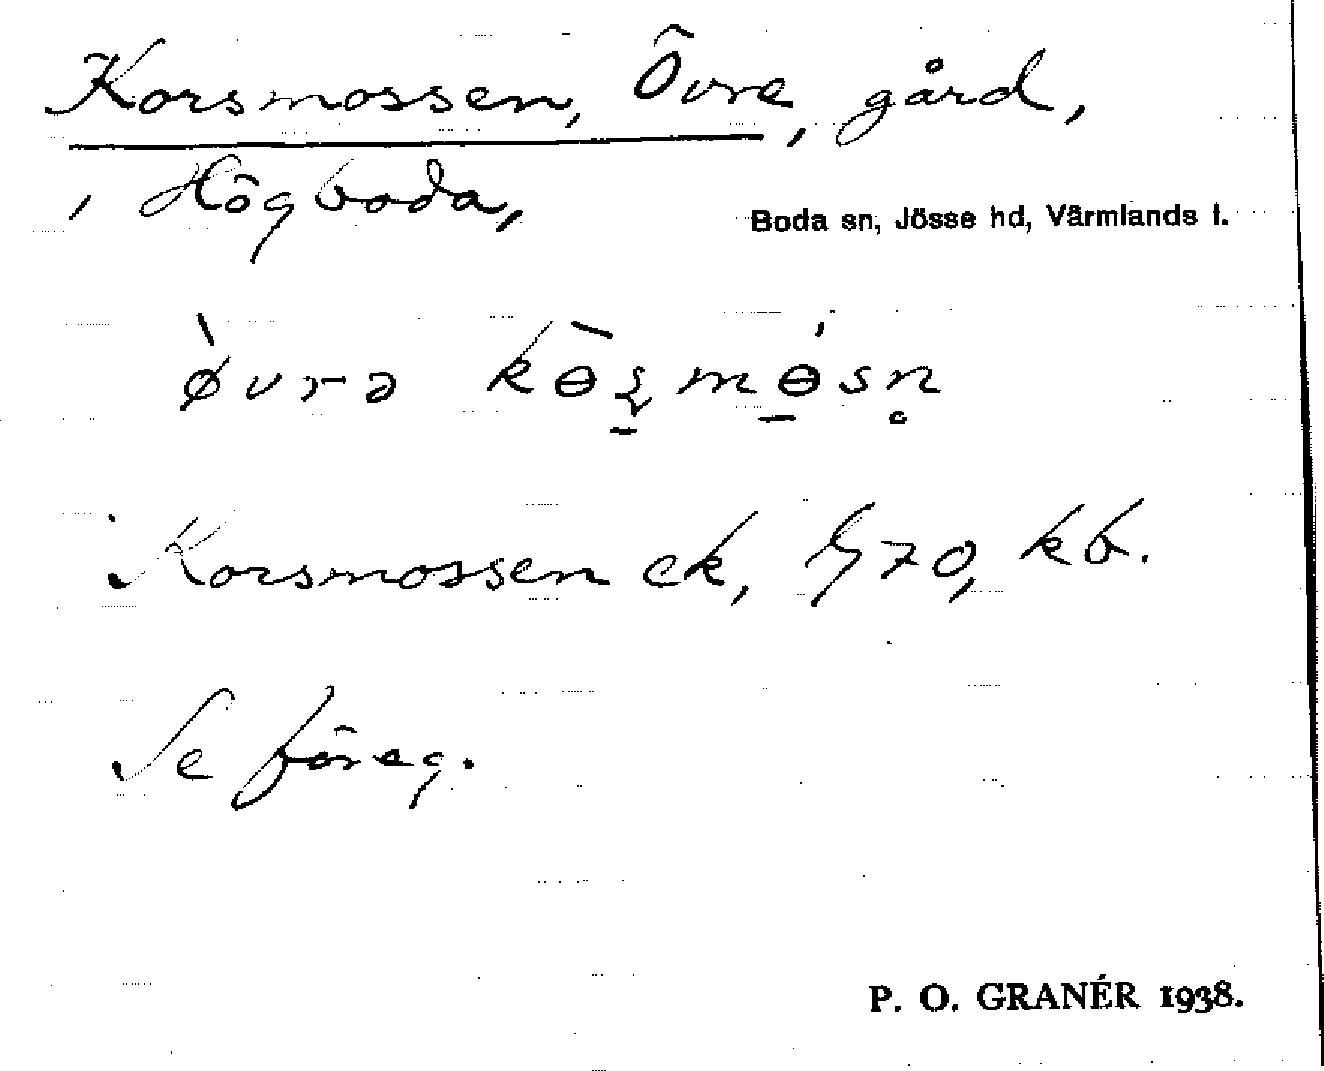 Korsmossen, Övre, gård,
i Högboda,
Boda sn, Jösse hd, Värmlands l.
ø̀vrə
Korsmossen ek, G 70, kb.
Se föreg.
P. O. GRANÉR 1938.